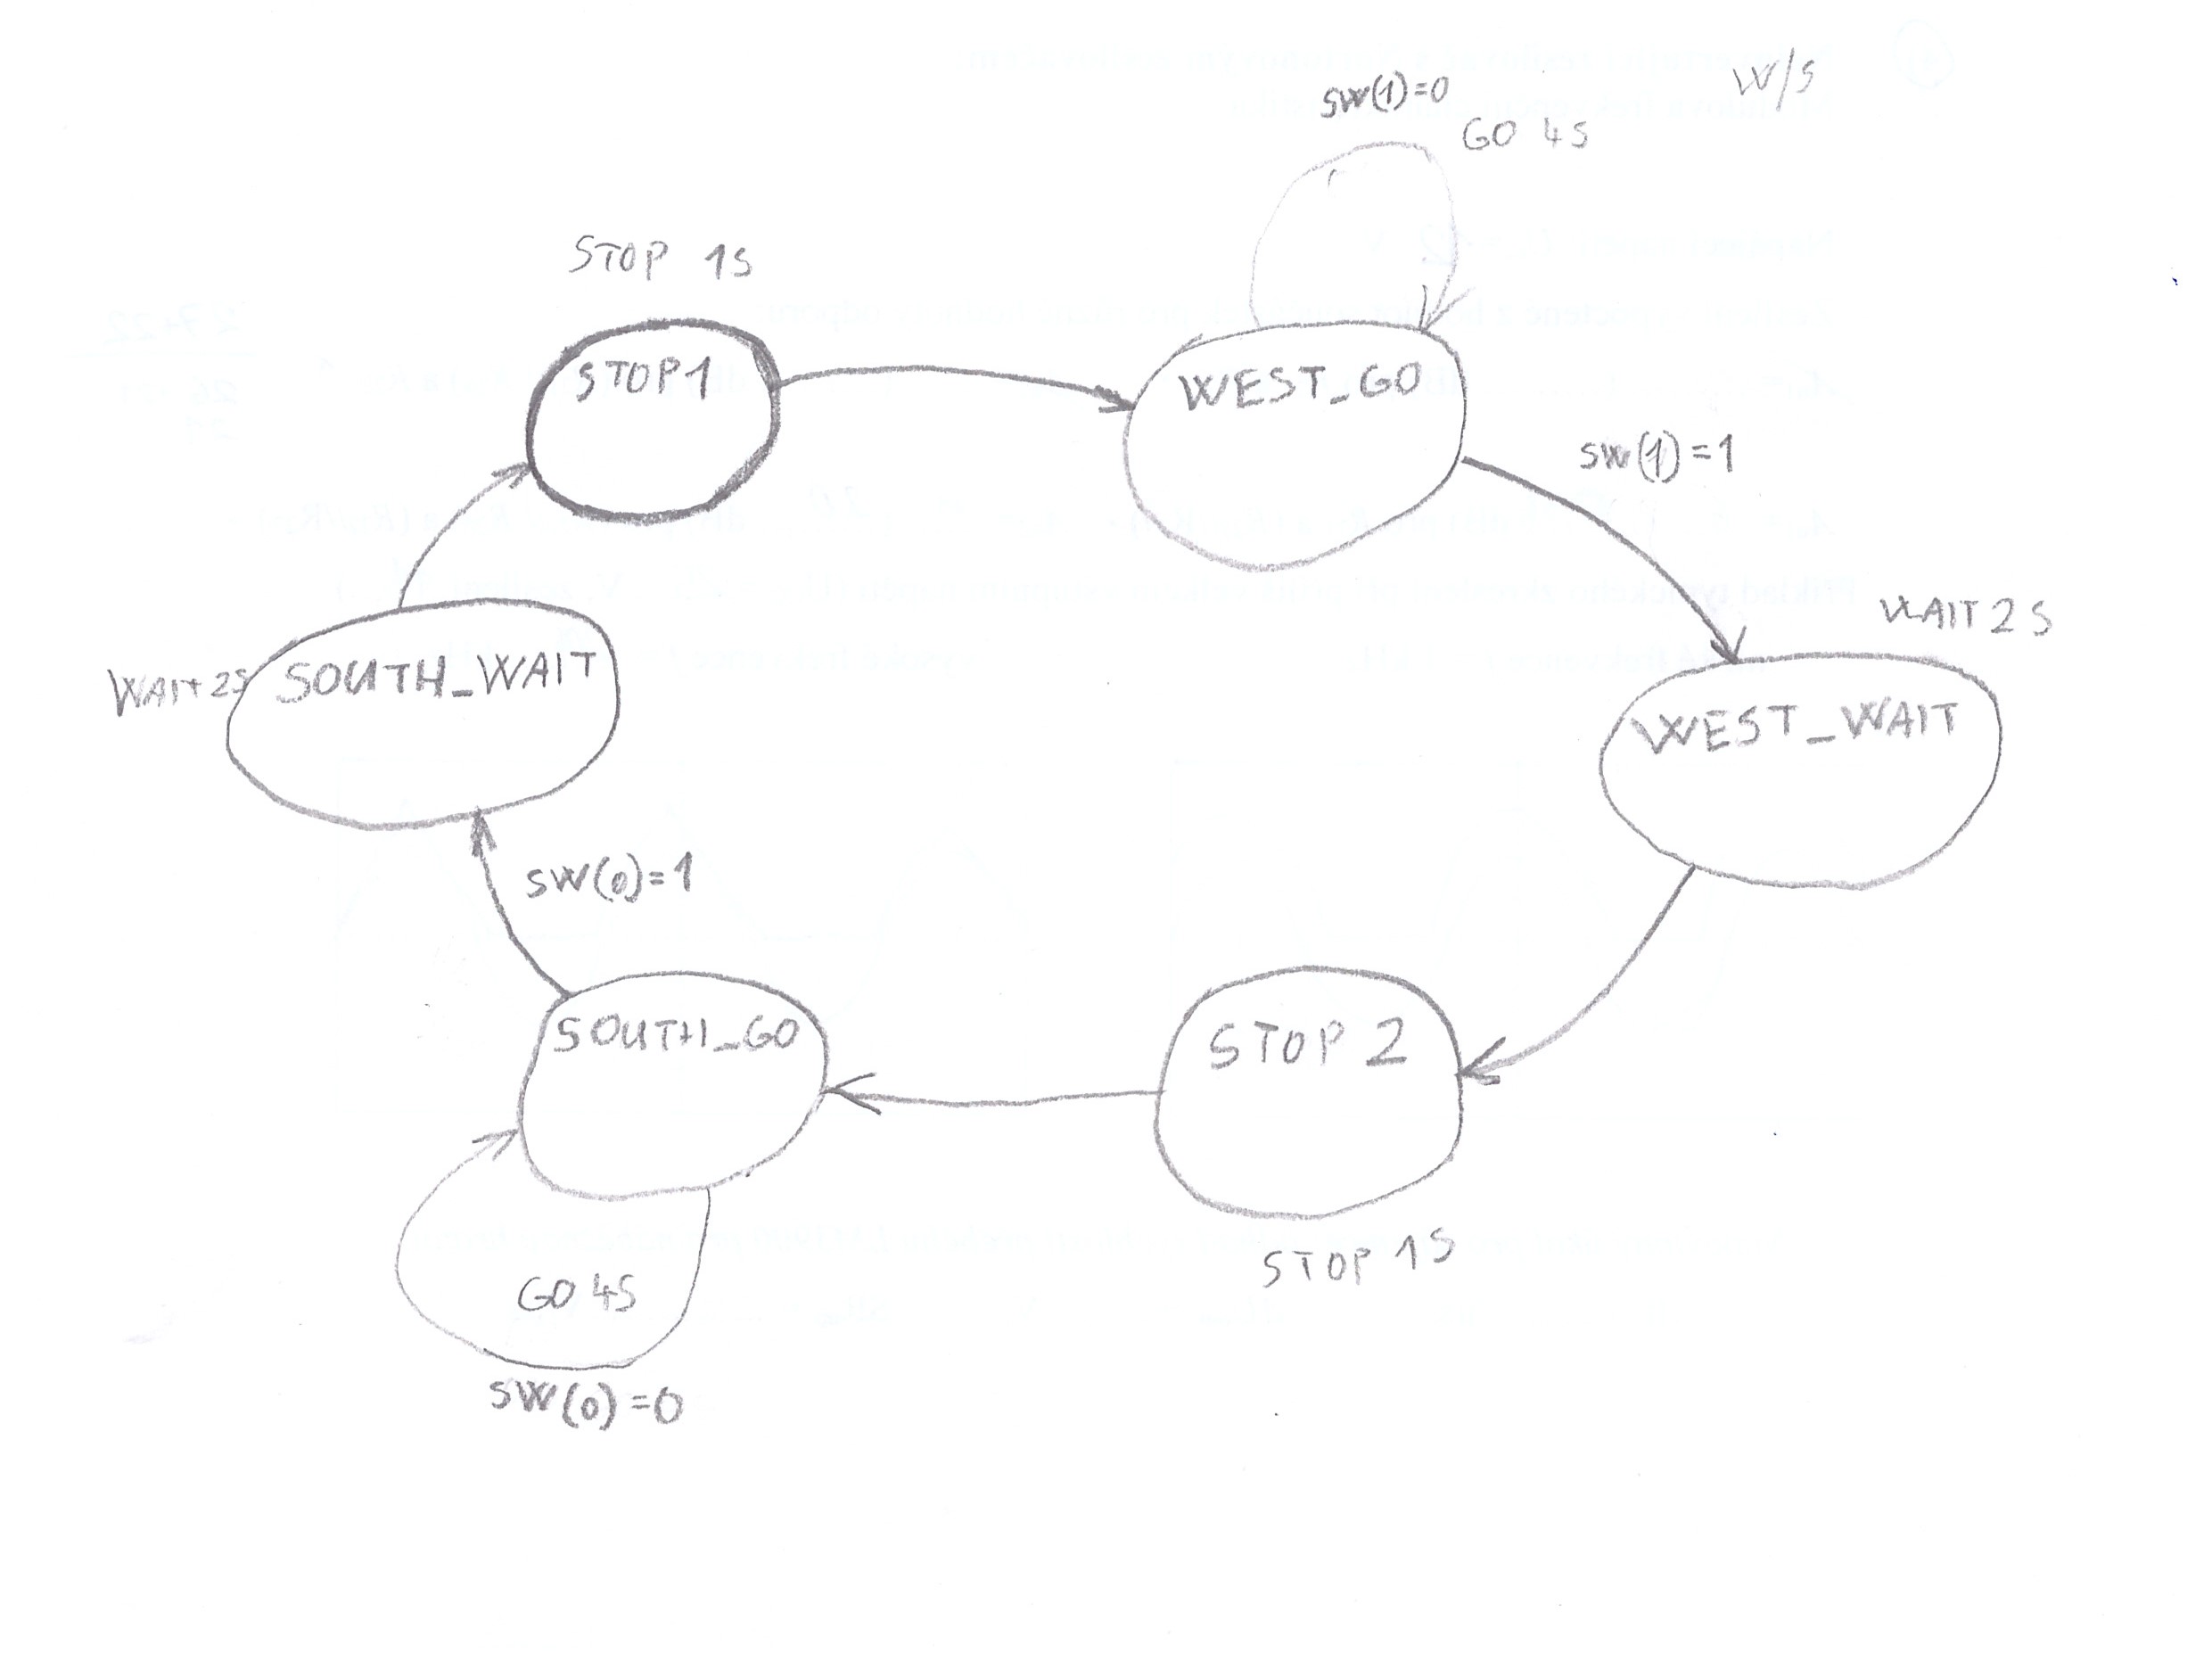 W/S
SW(1)=0
GO 4S
STOP 1S
STOP1
WEST_GO
SW(1)=1
WAIT 2S
WAIT 2S
SOUTH_WAIT
WEST_WAIT
SW(0)=1
SOUTH_GO
STOP 2
STOP 1S
GO 4S
SW(0)=0